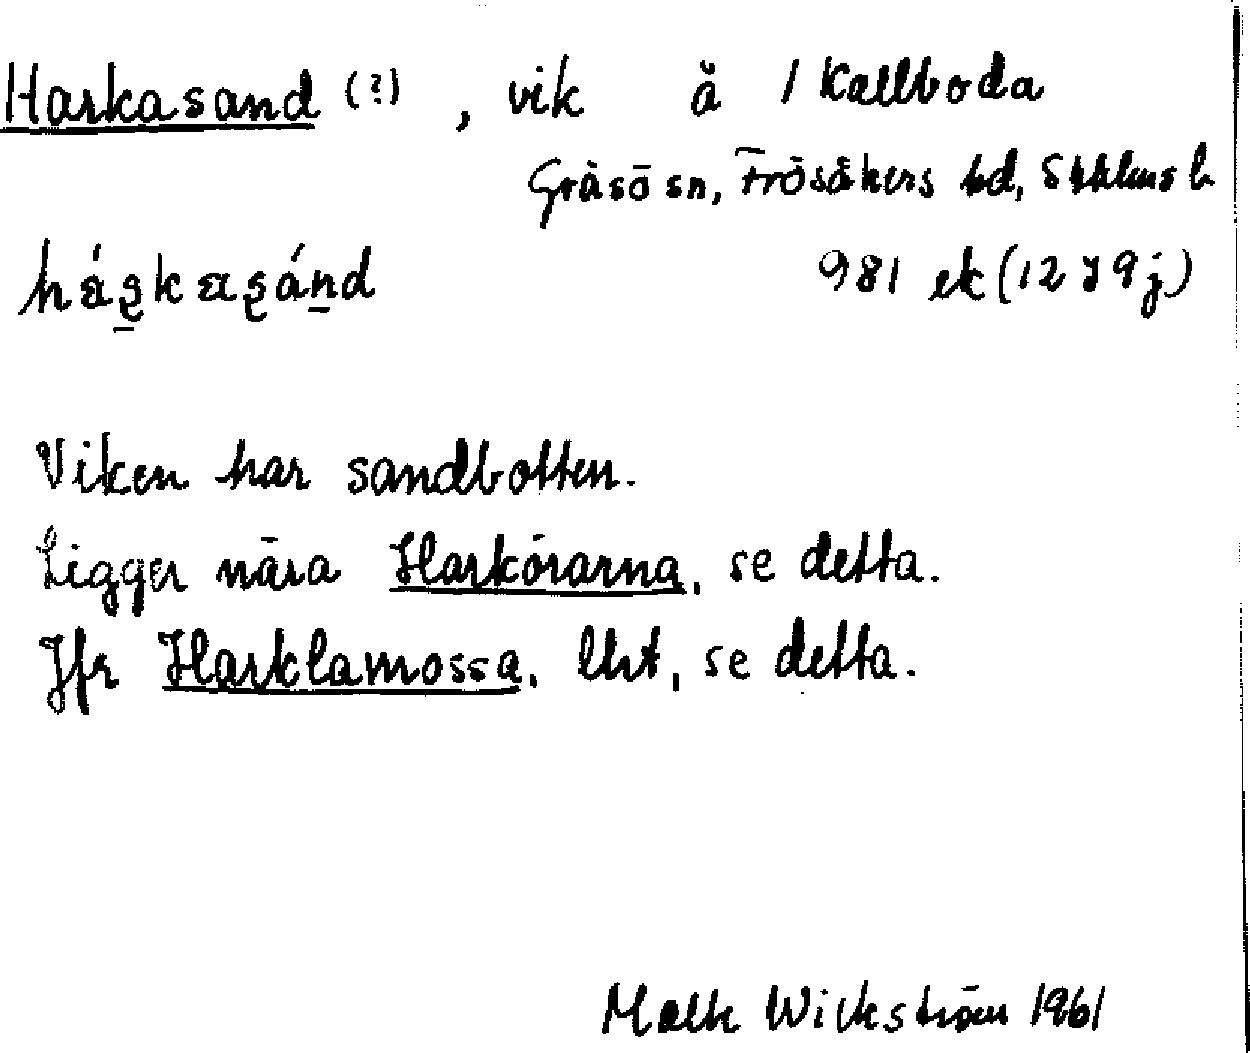 Harkasand (?) , vik å / Kallboda
Gräsö sn, Frösåkers hd, Sthlms l.
981 ek (12 I 9 j)
Viken har sandbotten.
Ligger nära Harkörarna, se detta.
Jfr Harklamossa, likt, se detta.
Wickström 1961